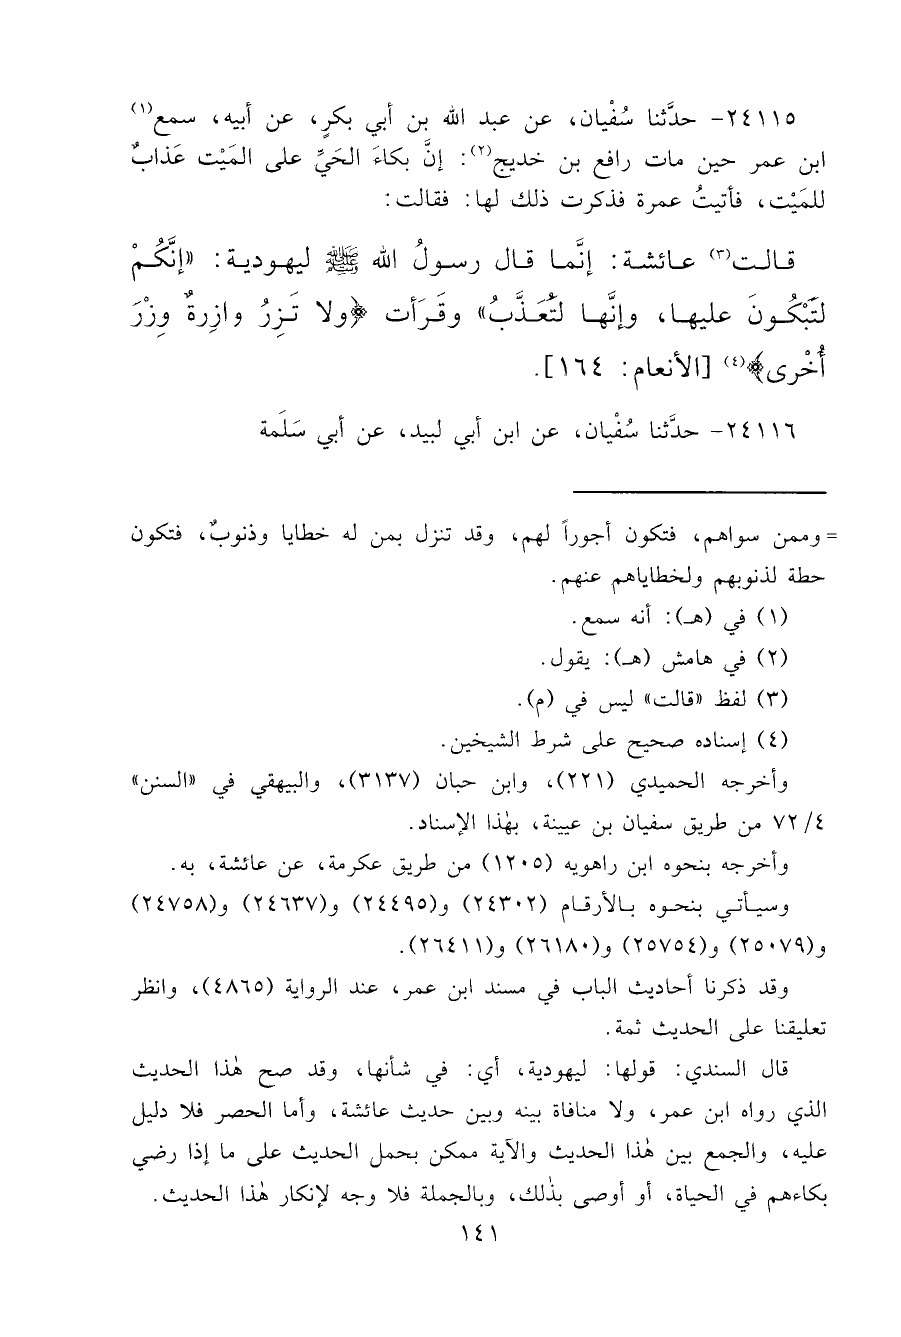 ٢٤١١٥- حدَّثنا سُفْيان، عن عبد الله بن أبي بكرٍ، عن أبيه، سمع(١)
ابن عمر حين مات رافع بن خديج(٢): إنَّ بكاءَ الحَيِّ على المَيْت عَذابٌ
للمَيْت، فأتيتُ عمرة فذكرت ذلك لها: فقالت:
قـالـت(٣) عـائـشـة: إنَّمـا قـال رسـولُ الله ﷺ ليهـوديـة: «إنَّكُـمْ
لتَبْكُـونَ عليهـا، وإنَّهـا لتُعَـذَّبُ» وقَـرَأَت ﴿ولا تَـزِرُ وازِرةٌ وِزْرَ
أُخْرى﴾(٤) [الأنعام: ١٦٤].
٢٤١١٦- حدَّثنا سُفْيان، عن ابن أبي لبيد، عن أبي سَلَمة
= وممن سواهم، فتكون أجوراً لهم، وقد تنزل بمن له خطايا وذنوبٌ، فتكون
حطة لذنوبهم ولخطاياهم عنهم.
(١) في (هـ): أنه سمع.
(٢) في هامش (هـ): يقول.
(٣) لفظ «قالت» ليس في (م).
(٤) إسناده صحيح على شرط الشيخين.
وأخرجه الحميدي (٢٢١)، وابن حبان (٣١٣٧)، والبيهقي في «السنن»
٤/ ٧٢ من طريق سفيان بن عيينة، بهٰذا الإسناد.
وأخرجه بنحوه ابن راهويه (١٢٠٥) من طريق عكرمة، عن عائشة، به.
وسيـأتـي بنحـوه بـالأرقـام (٢٤٣٠٢) و(٢٤٤٩٥) و(٢٤٦٣٧) و(٢٤٧٥٨)
و(٢٥٠٧٩) و(٢٥٧٥٤) و(٢٦١٨٠) و(٢٦٤١١).
وقد ذكرنا أحاديث الباب في مسند ابن عمر، عند الرواية (٤٨٦٥)، وانظر
تعليقنا على الحديث ثمة.
قال السندي: قولها: ليهودية، أي: في شأنها، وقد صح هٰذا الحديث
الذي رواه ابن عمر، ولا منافاة بينه وبين حديث عائشة، وأما الحصر فلا دليل
عليه، والجمع بين هٰذا الحديث والآية ممكن بحمل الحديث على ما إذا رضي
بكاءهم في الحياة، أو أوصى بذٰلك، وبالجملة فلا وجه لإنكار هٰذا الحديث.
١٤١